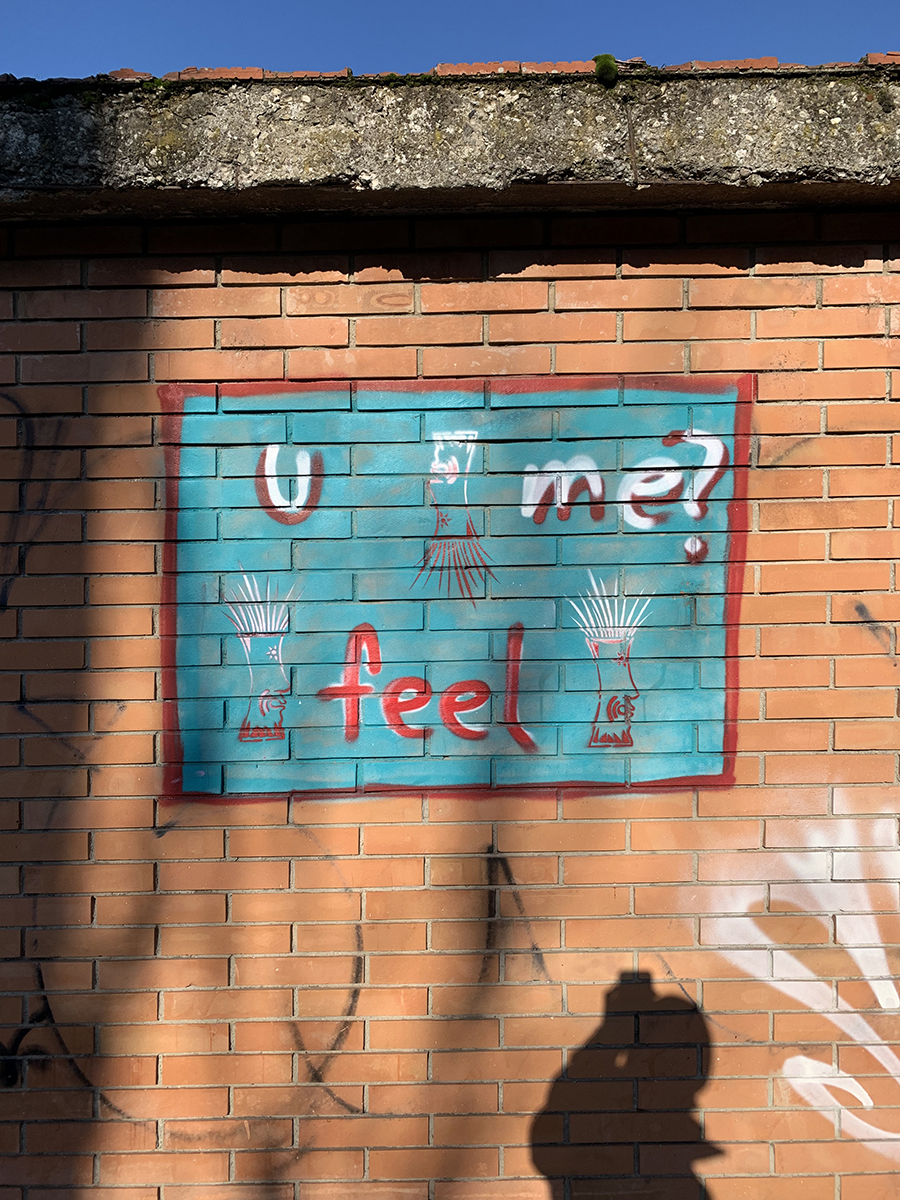 u me?
feel